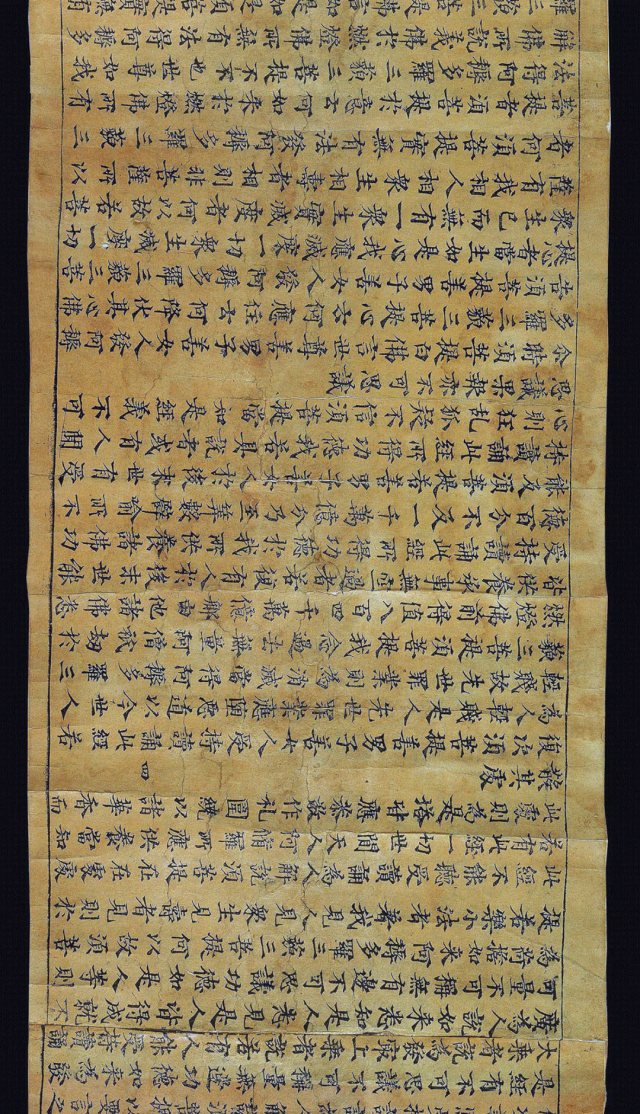 以要言之
是經有不可思議不可稱量無邊功德如來為發
大乘者說為發最上乘者說若有人能受持讀誦
廣為人說如來悉知是人悉見是人皆得成就不
可量不可稱無有邊不可思議功德如是人等則
為荷擔如來阿耨多羅三藐三菩提何以故須菩
提若樂小法者著我見人見眾生見壽者見則於
此經不能聽受讀誦為人解說須菩提在在處處
若有此經一切世間天人阿脩羅所應供養當知
此處則為是塔皆應恭敬作礼圍繞以諸華香而
散其處 四
復次須菩提善男子善女人受持讀誦此經若
為人輕賤是人先世罪業應墮惡道以今世人
輕賤故先世罪業則為消滅當得阿耨多羅三
藐三菩提須菩提我念過去無量阿僧祇劫於
燃燈佛前得值八百四千萬億那由他諸佛悉
皆供養承事無空過者若復有人於後末世能
受持讀誦此經所得功德於我所供養諸佛功
德百分不及一千萬億分乃至筭數譬喻所不
能及須菩提若善男子善女人於後末世有受
持讀誦此經所得功德我若具說者或有人聞
心則狂乱狐疑不信須菩提當知是經義不可
思議果報亦不可思議
尒時須菩提白佛言世尊善男子善女人發阿耨
多羅三藐三菩提心云何應住云何降伏其心佛
告須菩提善男子善女人發阿耨多羅三藐三菩
提心者當生如是心我應滅度一切眾生滅度一切
眾生已而無有一眾生實滅度者何以故若菩
薩有我相人相眾生相壽者相則非菩薩所以
者何須菩提實無有法發阿耨多羅三藐三
菩提者須菩提於意云何如來於燃燈佛所有
法得阿耨多羅三藐三菩提不不也世尊如我
解佛所說義佛於燃燈佛所無有法得阿耨多
羅三藐三菩提佛